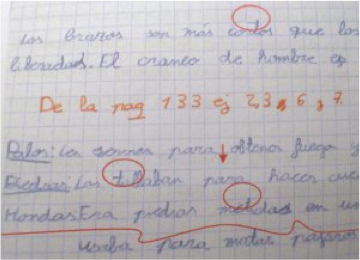 Los brazos son más cortos que los
liberadas. El craneo de hombre es
De la pag 133 ej 2,3, 6, 7.
Palos: Los para obtener fuego y
Piedras: Las tallaban para hacer
Hondas Era piedras metidas en un
usaba para matar pajaros